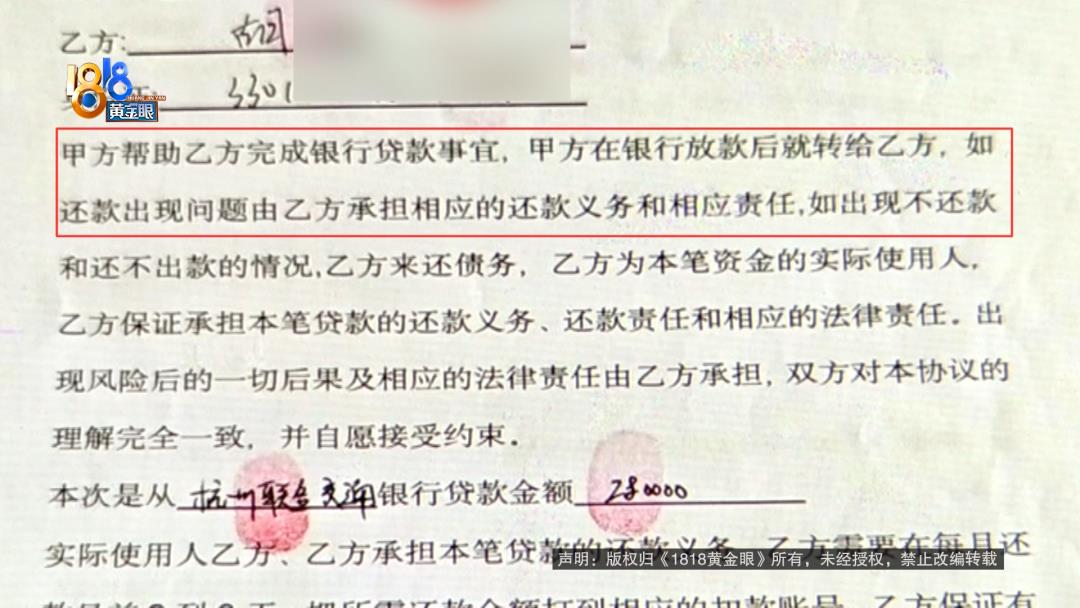 乙方:
1818
黄金眼
3301
甲方帮助乙方完成银行贷款事宜，甲方在银行放款后就转给乙方，如
还款出现问题由乙方承担相应的还款义务和相应责任,如出现不还款
和还不出款的情况,乙方来还债务，乙方为本笔资金的实际使用人，
乙方保证承担本笔贷款的还款义务、还款责任和相应的法律责任。出
现风险后的一切后果及相应的法律责任由乙方承担，双方对本协议的
理解完全一致，并自愿接受约束。
本次是从杭州联合银行贷款金额280000
实际使用人乙方、乙方承担本笔贷款的还款义务、乙方需要在每月还
声明：版权归《1818黄金眼》所有，未经授权，禁止改编转载